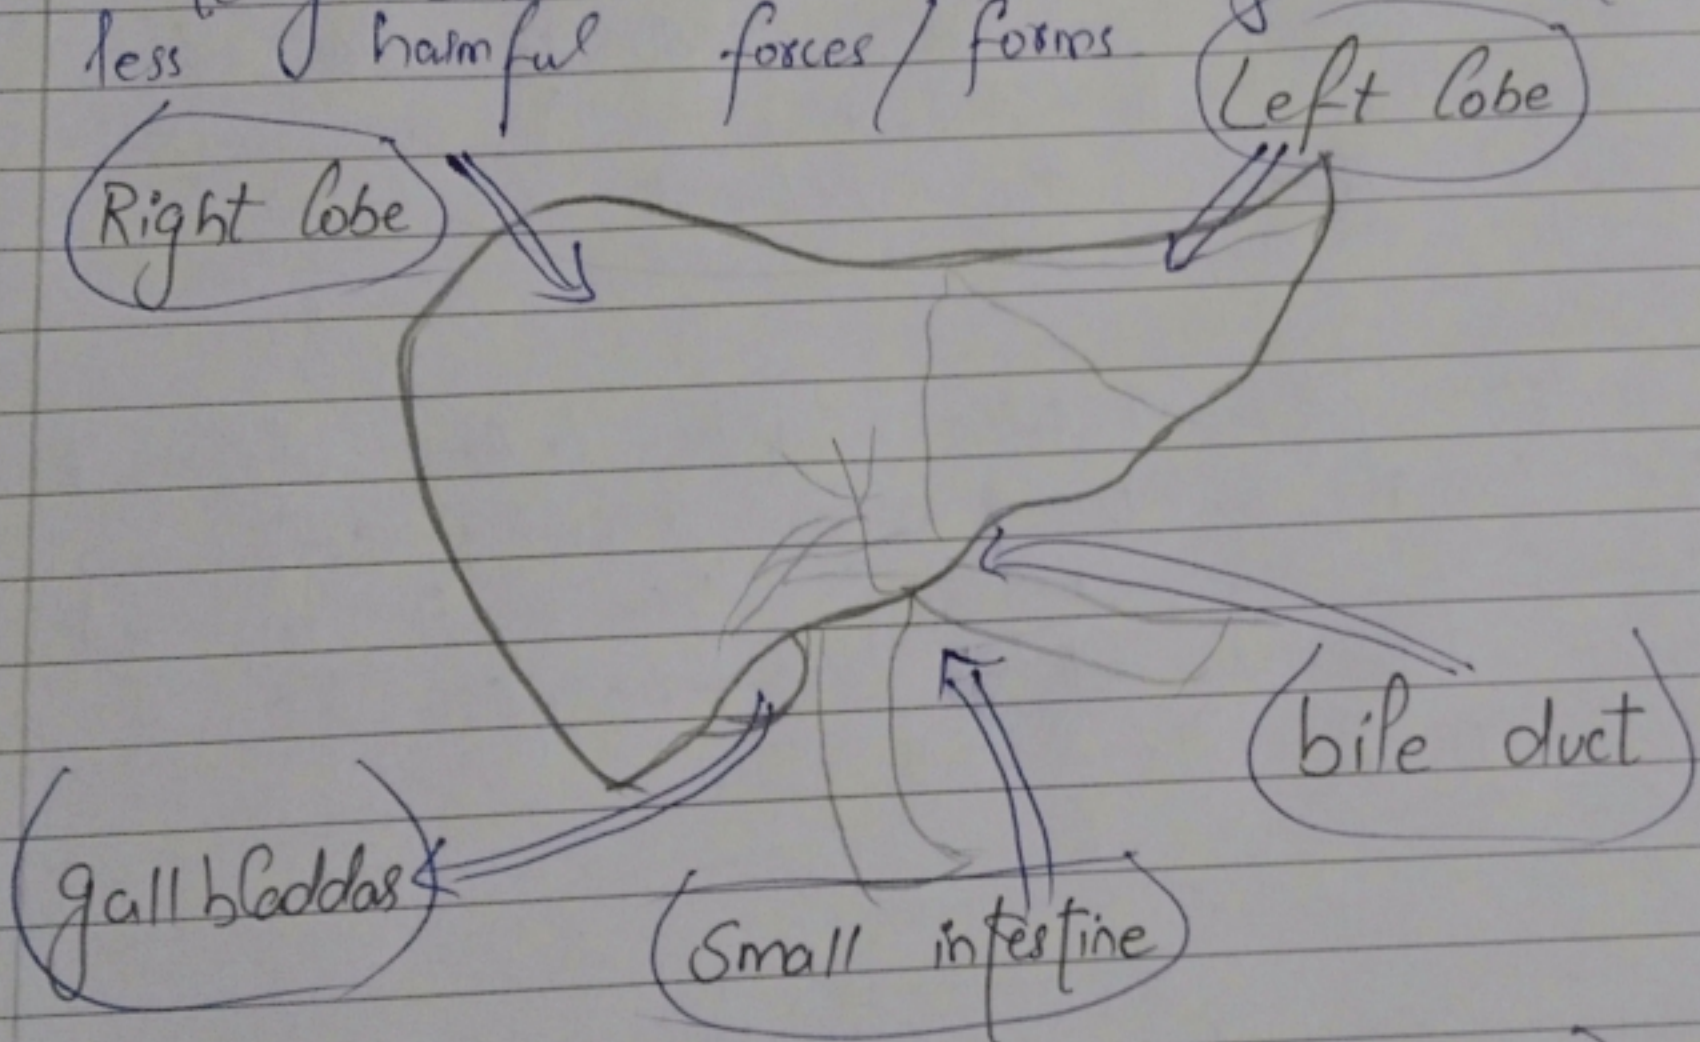 less harmful forces/forms
Left lobe
Right lobe
bile duct
gallbladdas
Small intestine